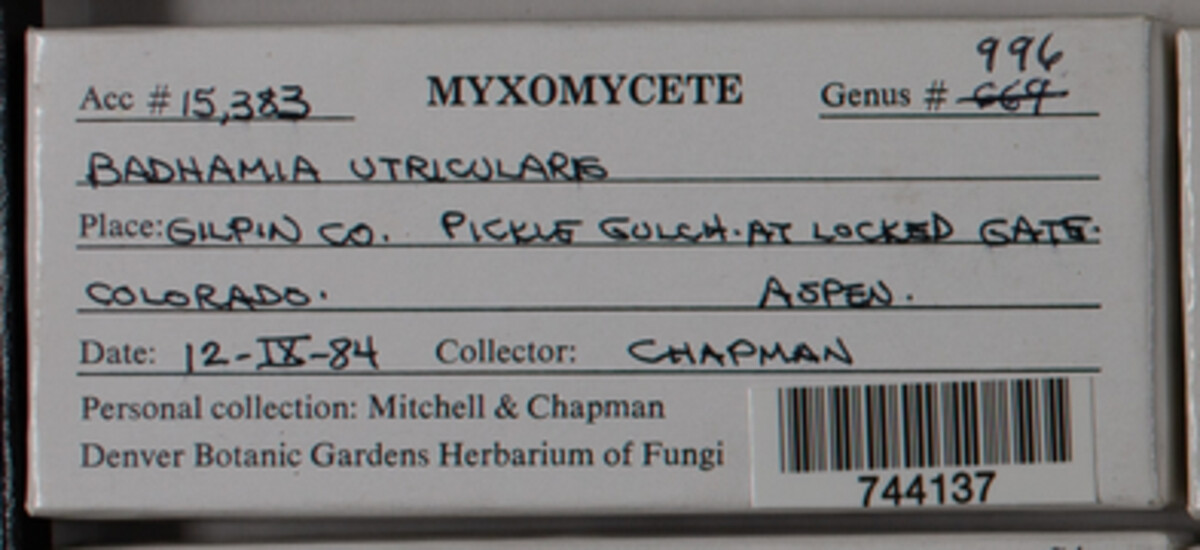 996
Acc # 15,383 MYXOMYCETE Genus # 669
BADHAMIA UTRICULARE
Place: GILPIN CO. PICKLE GULCH. AT LOCKED GATE.
COLORADO. ASPEN.
Date: 12-IX-84 Collector: CHAPMAN
Personal collection: Mitchell & Chapman
Denver Botanic Gardens Herbarium of Fungi
744137